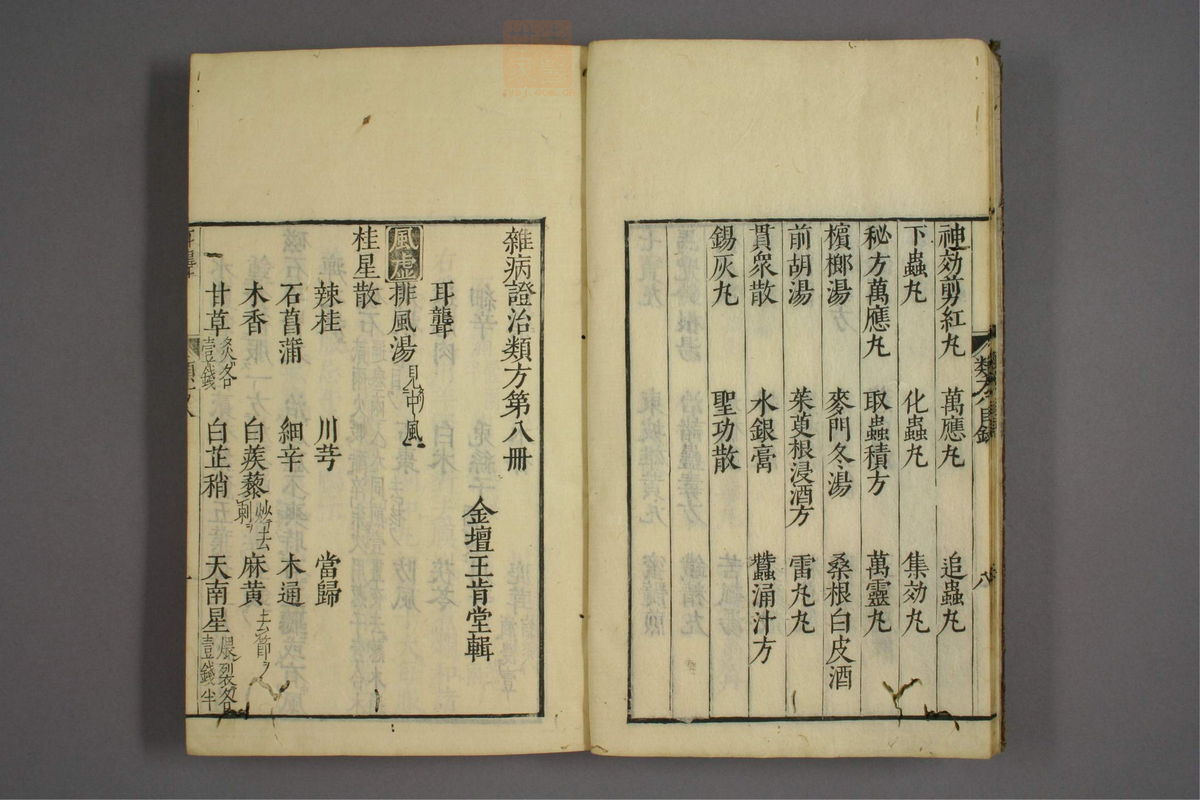 神効剪紅丸 萬應丸 追蟲丸
下蟲丸 化蟲丸 集効丸
秘方萬應丸 取蟲積方 萬靈丸
檳榔湯 麥門冬湯 桑根白皮酒
前胡湯 茱萸根浸酒方 雷丸丸
貫衆散 水銀膏 蠶涌汁方
錫灰丸 聖功散
類方目錄 八
雜病證治類方第八冊
金壇王肯堂輯
耳聾
風虛 排風湯 見中風
桂星散
辣桂 川芎 當歸
石菖蒲 細辛 木通
木香 白蒺藜 炒去刺 麻黃 去節
甘草 炙各壹錢 白芷稍 天南星 煨裂各壹錢半